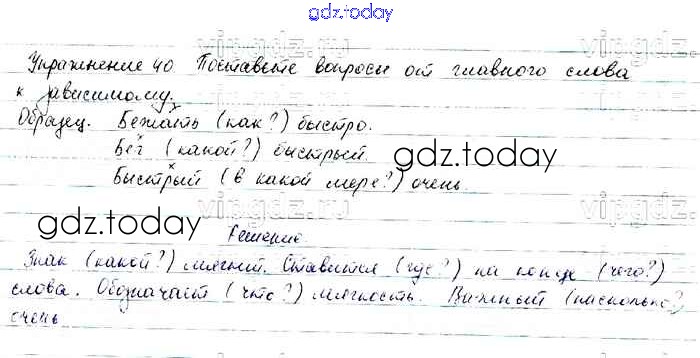 gdz.today
Упражнение 40 Поставьте вопросы от главного слова
к зависимому.
Образец. Бежать (как?) быстро.
Бег (какой?) быстрый.
gdz.today
Быстрый (в какой мере?) очень.
vipgdz.ru
gdz.today
Решение
Знак (какой?) мягкий. Ставится (где?) на конце (чего?)
слова. Обозначает (что?) мягкость. Важный (насколько?)
очень